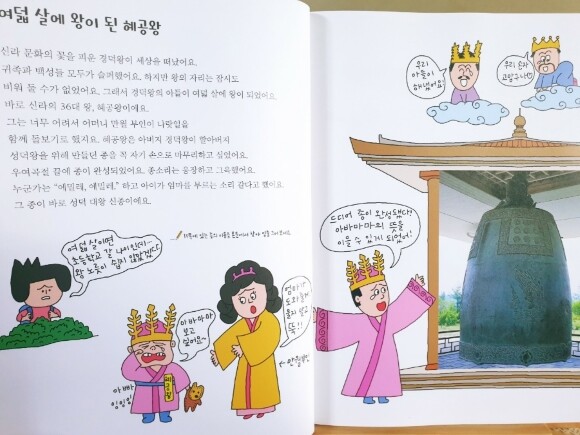 여덟 살에 왕이 된 혜공왕
신라 문화의 꽃을 피운 경덕왕이 세상을 떠났어요.
귀족과 백성들 모두가 슬퍼했어요. 하지만 왕의 자리는 잠시도
비워 둘 수가 없었어요. 그래서 경덕왕의 아들이 여덟 살에 왕이 되었어요.
바로 신라의 36대 왕, 혜공왕이에요.
그는 너무 어려서 어머니 만월 부인이 나랏일을
함께 돌보기로 했지요. 혜공왕은 아버지 경덕왕이 할아버지
성덕왕을 위해 만들던 종을 꼭 자기 손으로 마무리하고 싶었어요.
우여곡절 끝에 종이 완성되었어요. 종소리는 웅장하고 그윽했어요.
누군가는 "에밀레, 에밀레." 하고 아이가 엄마를 부르는 소리 같다고 했어요.
그 종이 바로 성덕 대왕 신종이에요.
여덟 살이면
초등학교 갈 나이인데...
왕 노릇이 쉽지 않았겠다
아바마마
보고
싶어요~
아빠
잉잉잉
혜공왕
엄마가
도와줄게
울지 말고
뚝!!
만월부인
우리
아들이
해냈어요!
우리 손자
고맙구나♡
드디어 종이 완성됐다!
아바마마의 뜻을
이을 수 있게 되었어!